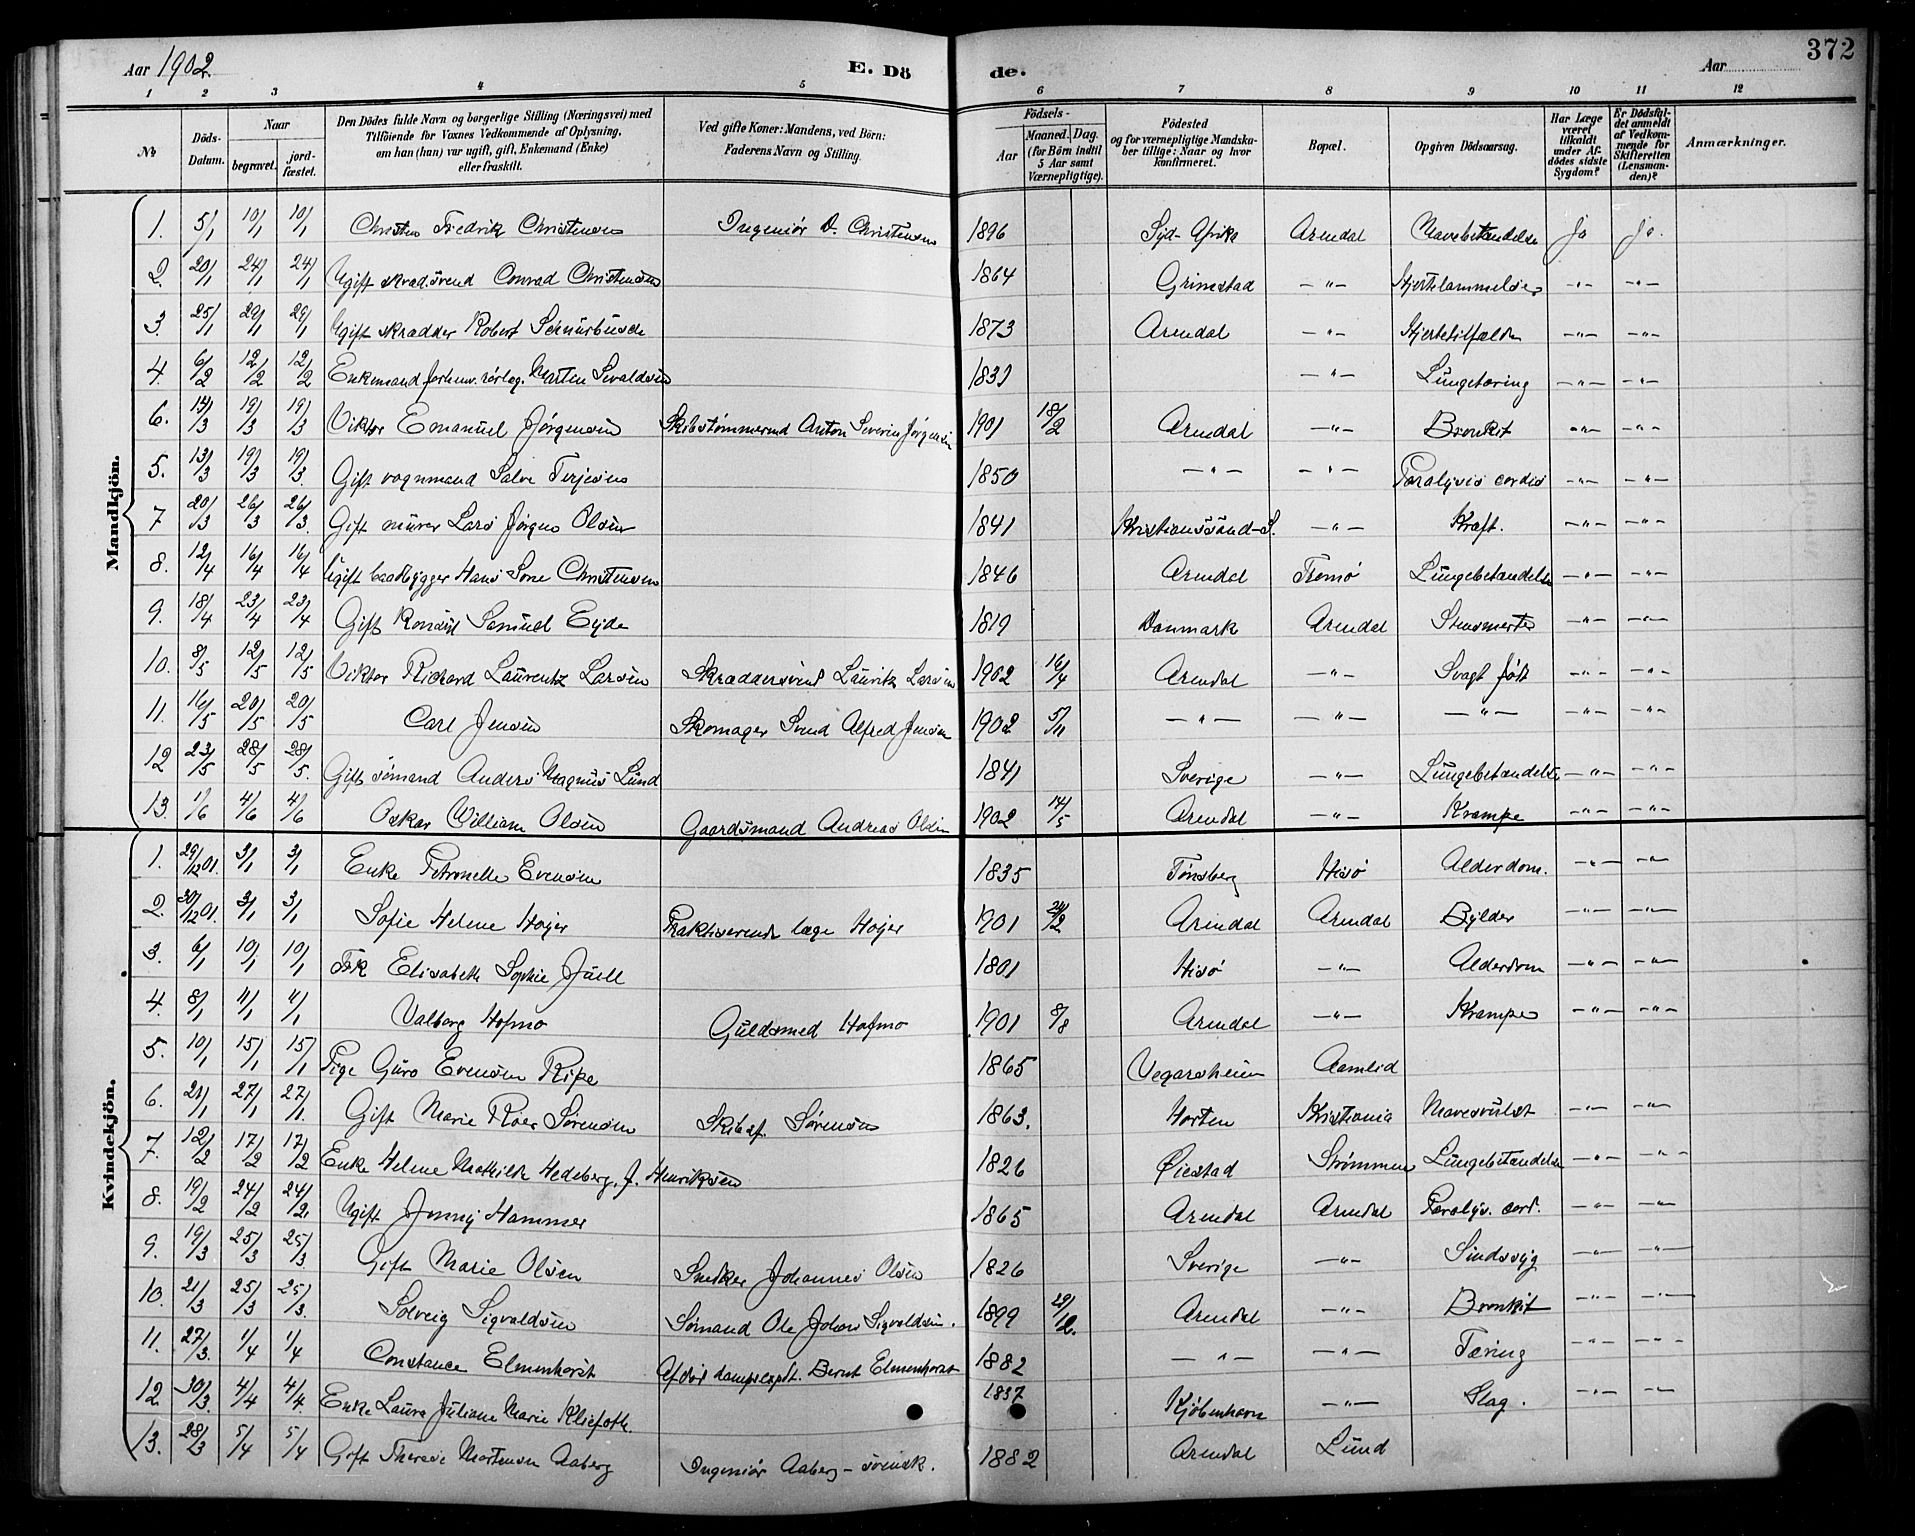 Aar 1902. E. Dö de. Aar 372
1 2 3 4 5 6 7 8 9 10 11 12
№ Döds-Datum. Naar begravet. jordfæstet. Den Dödes fulde Navn og borgerlige Stilling (Næringsvei) med Tilföiende for Voxnes Vedkommende af Oplysning, om han (hun) var ugift, gift, Enkemand (Enke) eller fraskilt. Ved gifte Koner: Mandens, ved Börn: Faderens Navn og Stilling. Födsels- Aar Maaned. Dag. (for Börn indtil 5 Aar samt Værnepligtige). Födested og for værnepligtige Mandskaber tillige: Naar og hvor konfirmeret. Bopæl. Opgiven Dödsaarsag. Har Læge været tilkaldt under Afdödes sidste Sygdom? Er Dödsfaldet anmeldt af Vedkommende for Skifteretten (Lensmanden)? Anmærkninger.
Mandkjön.
1. 5/1 10/1 10/1 Christen Fredrik Christensen Ingeniör D. Christensen 1896 Syd-Afrika Arendal Mavebetændelse Ja Ja.
2. 20/1 24/1 24/1 Ugift skræd.svend Conrad Christensen 1864 Grimstad -"- Hjertelammelse -"- -"-
3. 25/1 29/1 29/1 Ugift skrædder Robert Schnurbusch 1873 Arendal -"- Hjertetilfælde -"- -"-
4. 6/2 12/2 12/2 Enkemand Morten Sivaldsen -"- Lungetæring -"- -"-
6. 19/3 19/3 Viktor Emanuel Jørgensen Skibstømmermd Anton Severin Jørgensen 1901 18/2 Arendal -"- Bronkit -"- -"-
5. 13/3 19/3 19/3 Gift vognmand Salve Terjesen 1850 -"- -"- Paralysis cordis -"- -"-
7 20/3 26/3 26/3 Gift murer Lars Jørgen Olsen 1841 Kristianssand-S. -"- Kræft. -"- -"-
8. 12/4 16/4 16/4 baadbygger Hans Christensen 1846 Arendal Tromø Lungebetændelse -"- -"-
9. 18/4 23/4 23/4 Gift Konsul Samuel Eyde 1819 Danmark Arendal Stensmerter -"- -"-
10. 8/5 12/5 12/5 Viktor Richard Laurentz Larsen Skræddersvend Lauritz Larsen 1902 16/4 Arendal -"- Svagt født -"- -"-
11. 16/5 20/5 20/5 Carl Jensen Skomager Svend Alfred Jensen 1902 5/11 -"- -"- -"- -"- -"-
12 23/5 28/5 28/5. Gift sømand Anders Magnus Lund 1841 Sverige -"- Lungebetændelse -"- -"-
13. 1/6 4/6 4/6 Oskar William Olsen Gaardsmand Andreas Olsen 1902 14/5 Arendal -"- Krampe -"- -"-
Kvindekjön.
1. 29/12 01. 3/1 3/1 Enke Petronelle Evensen 1835 Tønsberg Hisø Alderdom. -"- -"-
2. 30/12 01. 3/1 3/1 Sofie Helene Høyer Praktiserende læge Høyer 1901 Arendal Arendal Bylder -"- -"-
3. 6/1 10/1 10/1 Frk Elisabeth Sophie Juell 1801 Hisø -"- Alderdom -"- -"-
4. 8/1 11/1 11/1 Valborg Hofmo Guldsmed Hofmo 1901 8/8 Arendal -"- Krampe -"- -"-
5. 10/1 15/1 15/1 Pige Guro Evensen Ripe 1865 Vegarsheien Aamlid
6. 21/1 27/1 27/1. Gift Marie Roer Sørensen Skibsf. Sørensen 1863. Horten Kristiania Mavesvulst -"- -"-
7. 12/2 17/2 17/2 Enke Helene Mathilde Hedeberg, f. Henriksen 1826 Øiestad Strømmen Lungebetændelse -"- -"-
8. 19/2 24/2 24/2. Ugift Jenny Hammer 1865 Arendal Arendal Paralys. cord. -"- -"-
9. 19/3 25/3 25/3. Gift Marie Olsen Snedker Johannes Olsen 1826 Sverige -"- Sindssyg -"- -"-
10. 21/3 25/3 25/3. Solveig Sigvaldsen Sømand Ole Johan Sigvaldsen. 1899 29/12. Arendal -"- Bronkit -"- -"-
11. 27/3. 1/4 1/4 Constance Elmenhorst Afdød dampexpdt. Bernt Elmenhorst 1882 -"- -"- Tæring -"- -"-
12. 30/3. 4/4 4/4. Enke Laura Juliane Marie Kliefoth. 1837 Kjøbenhavn -"- Slag. -"- -"-
13. 28/3 5/4 5/4 Gift Therese Mortensen Aaberg Ingeniør Aaberg - svensk. 1882 Arendal Lund